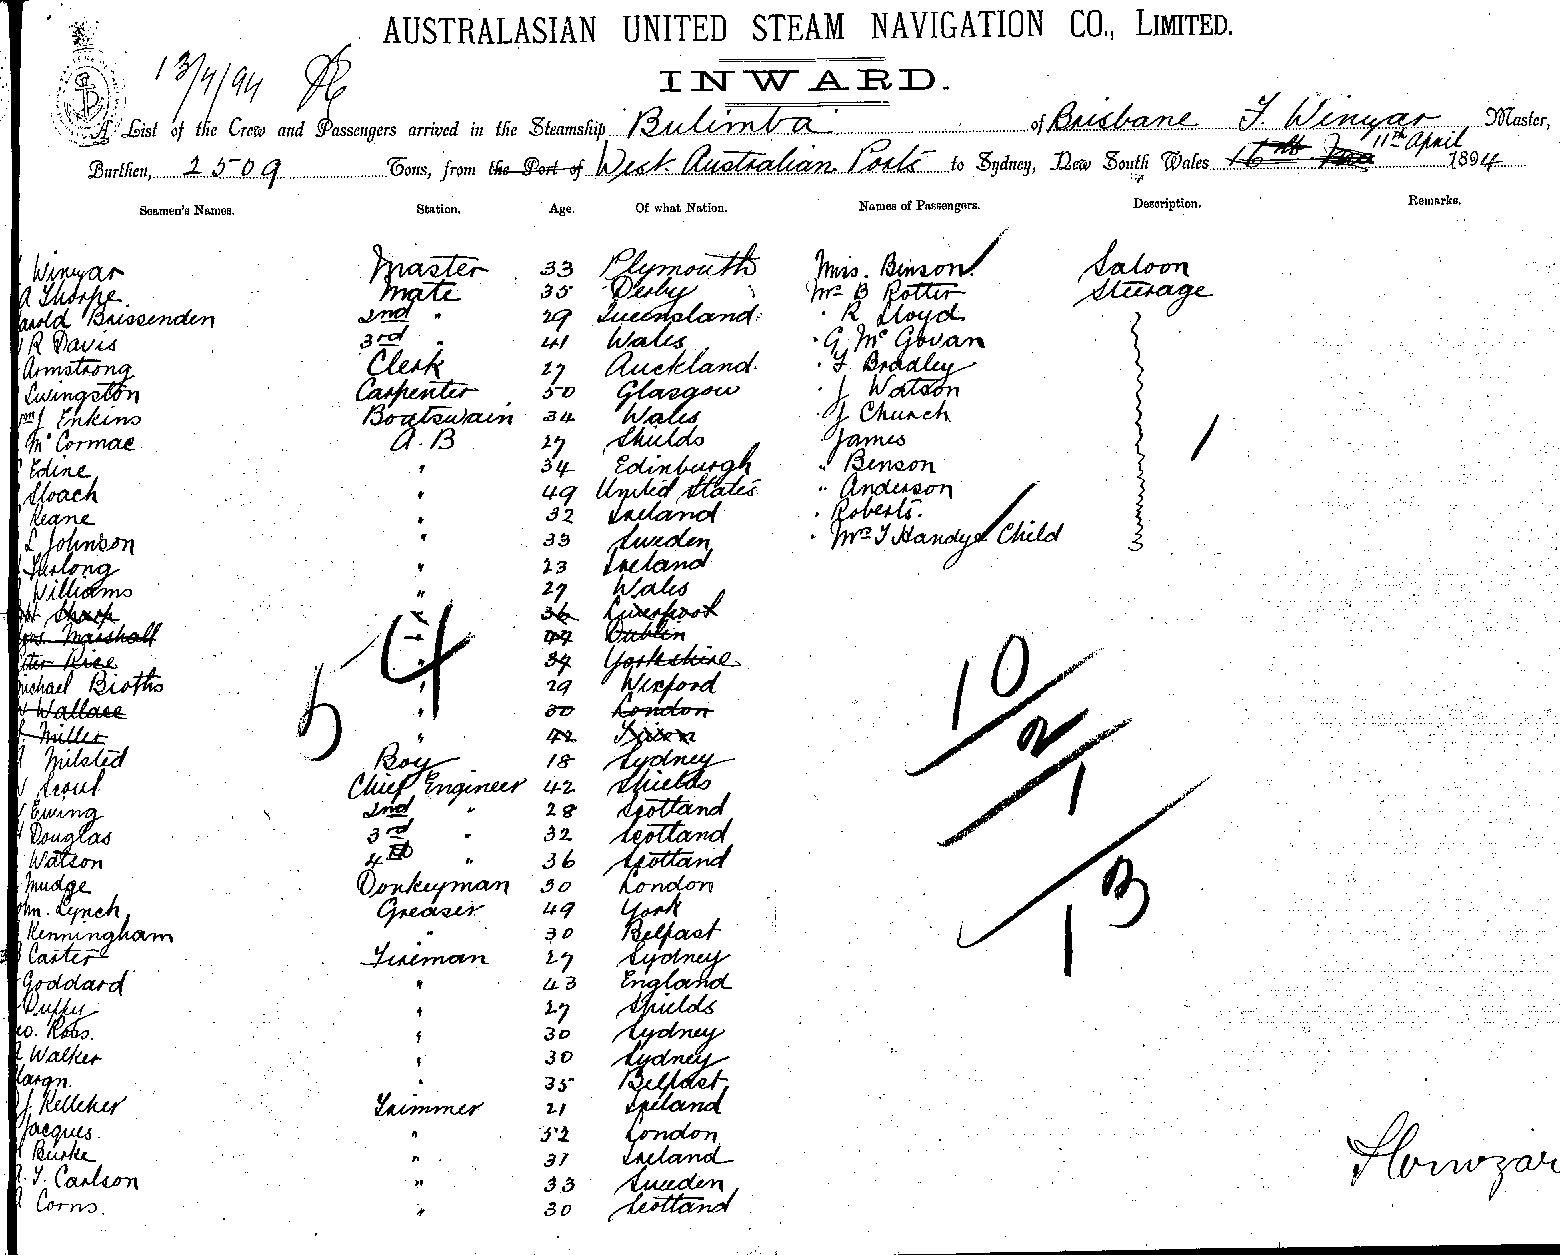 AUSTRALASIAN UNITED STEAM NAVIGATION CO., LIMITED.
13/4/94
INWARD.
A List of the Crew and Passengers arrived in the Steamship Bulimba of Brisbane F. Winyar Master,
Burthen, 2509 Tons, from the Port of West Australian Ports to Sydney, New South Wales 11th April 1894
Seamen's Names. Station. Age. Of what Nation. Names of Passengers. Description. Remarks.
Winyar Master 33 Plymouth Miss. Binson Saloon
A Thorpe. Mate 35 Derby Mr B Rotter Steerage
arold Brissenden 2nd " 29 Queensland " R Lloyd
R Davis 3rd " 41 Wales " G McGovan
Armstrong Clerk 27 Auckland " F Bradley
Livingston Carpenter 50 Glasgow " J Watson
J Enkins Boatswain 34 Wales " J Church
McCormac A.B 27 Shields James
Edine " 34 Edinburgh " Benson
Sloach " 49 United States " Anderson
Keane " 32 Ireland " Roberts.
L Johnson " 33 Sweden " Mrs T Handy & Child
Furlong " 23 Ireland
Williams " 27 Wales
Sharp " 36 Liverpool
Marshall " 44 Dublin
ter Rice " 34 Yorkshire
ichael Bioths " 29 Wexford
Wallace " 30 London
Miller " 42
Milsted Boy 18 Sydney
Scoul Chief Engineer 42 Shields
Ewing 2nd " 28 Scotland
Douglas 3rd " 32 Scotland
Watson 4th " 36 Scotland
Mudge Donkeyman 30 London
hn. Lynch Greaser 49 York
Kenningham " 30 Belfast
Carter Fireman 27 Sydney
Goddard " 43 England
Duffy " 27 Shields
eo. Ross. " 30 Sydney
Walker " 30 Sydney
Hargn. " 35 Belfast
J Kelleher Trimmer 21 Ireland
Jacques. " 52 London
Burke " 31 Ireland
A. F. Carlson " 33 Sweden
Corns. " 30 Scotland
54
10
2
1
13